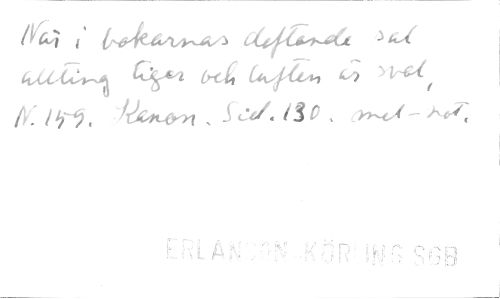 När i bokarnas doftande sal
allting tiger och luften är sval,
N. 159. Kanon. Sid. 130. mel-not.
ERLANDSON-KÖRLING SGB